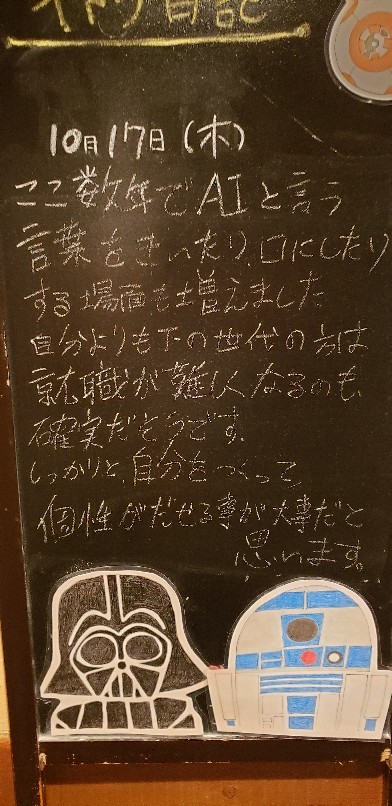 日記
10月17日(木)
ここ数年でAIと言う
言葉をきいたり、口にしたり
する場面も増えました
自分よりも下の世代の方は
就職が難しくなるのも、
確実だそうです。
しっかりと、自分をつくって
個性がだせる事が大事だと
思います。